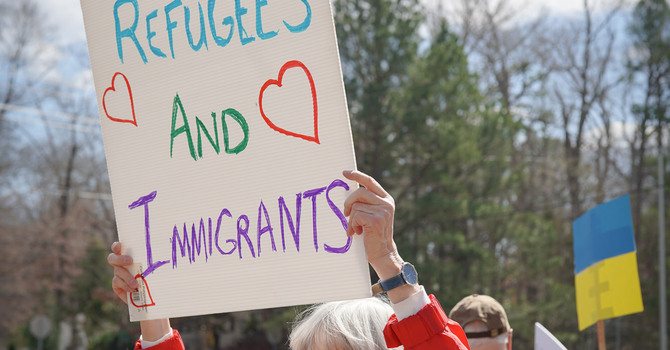 REFUGEES
AND
IMMIGRANTS